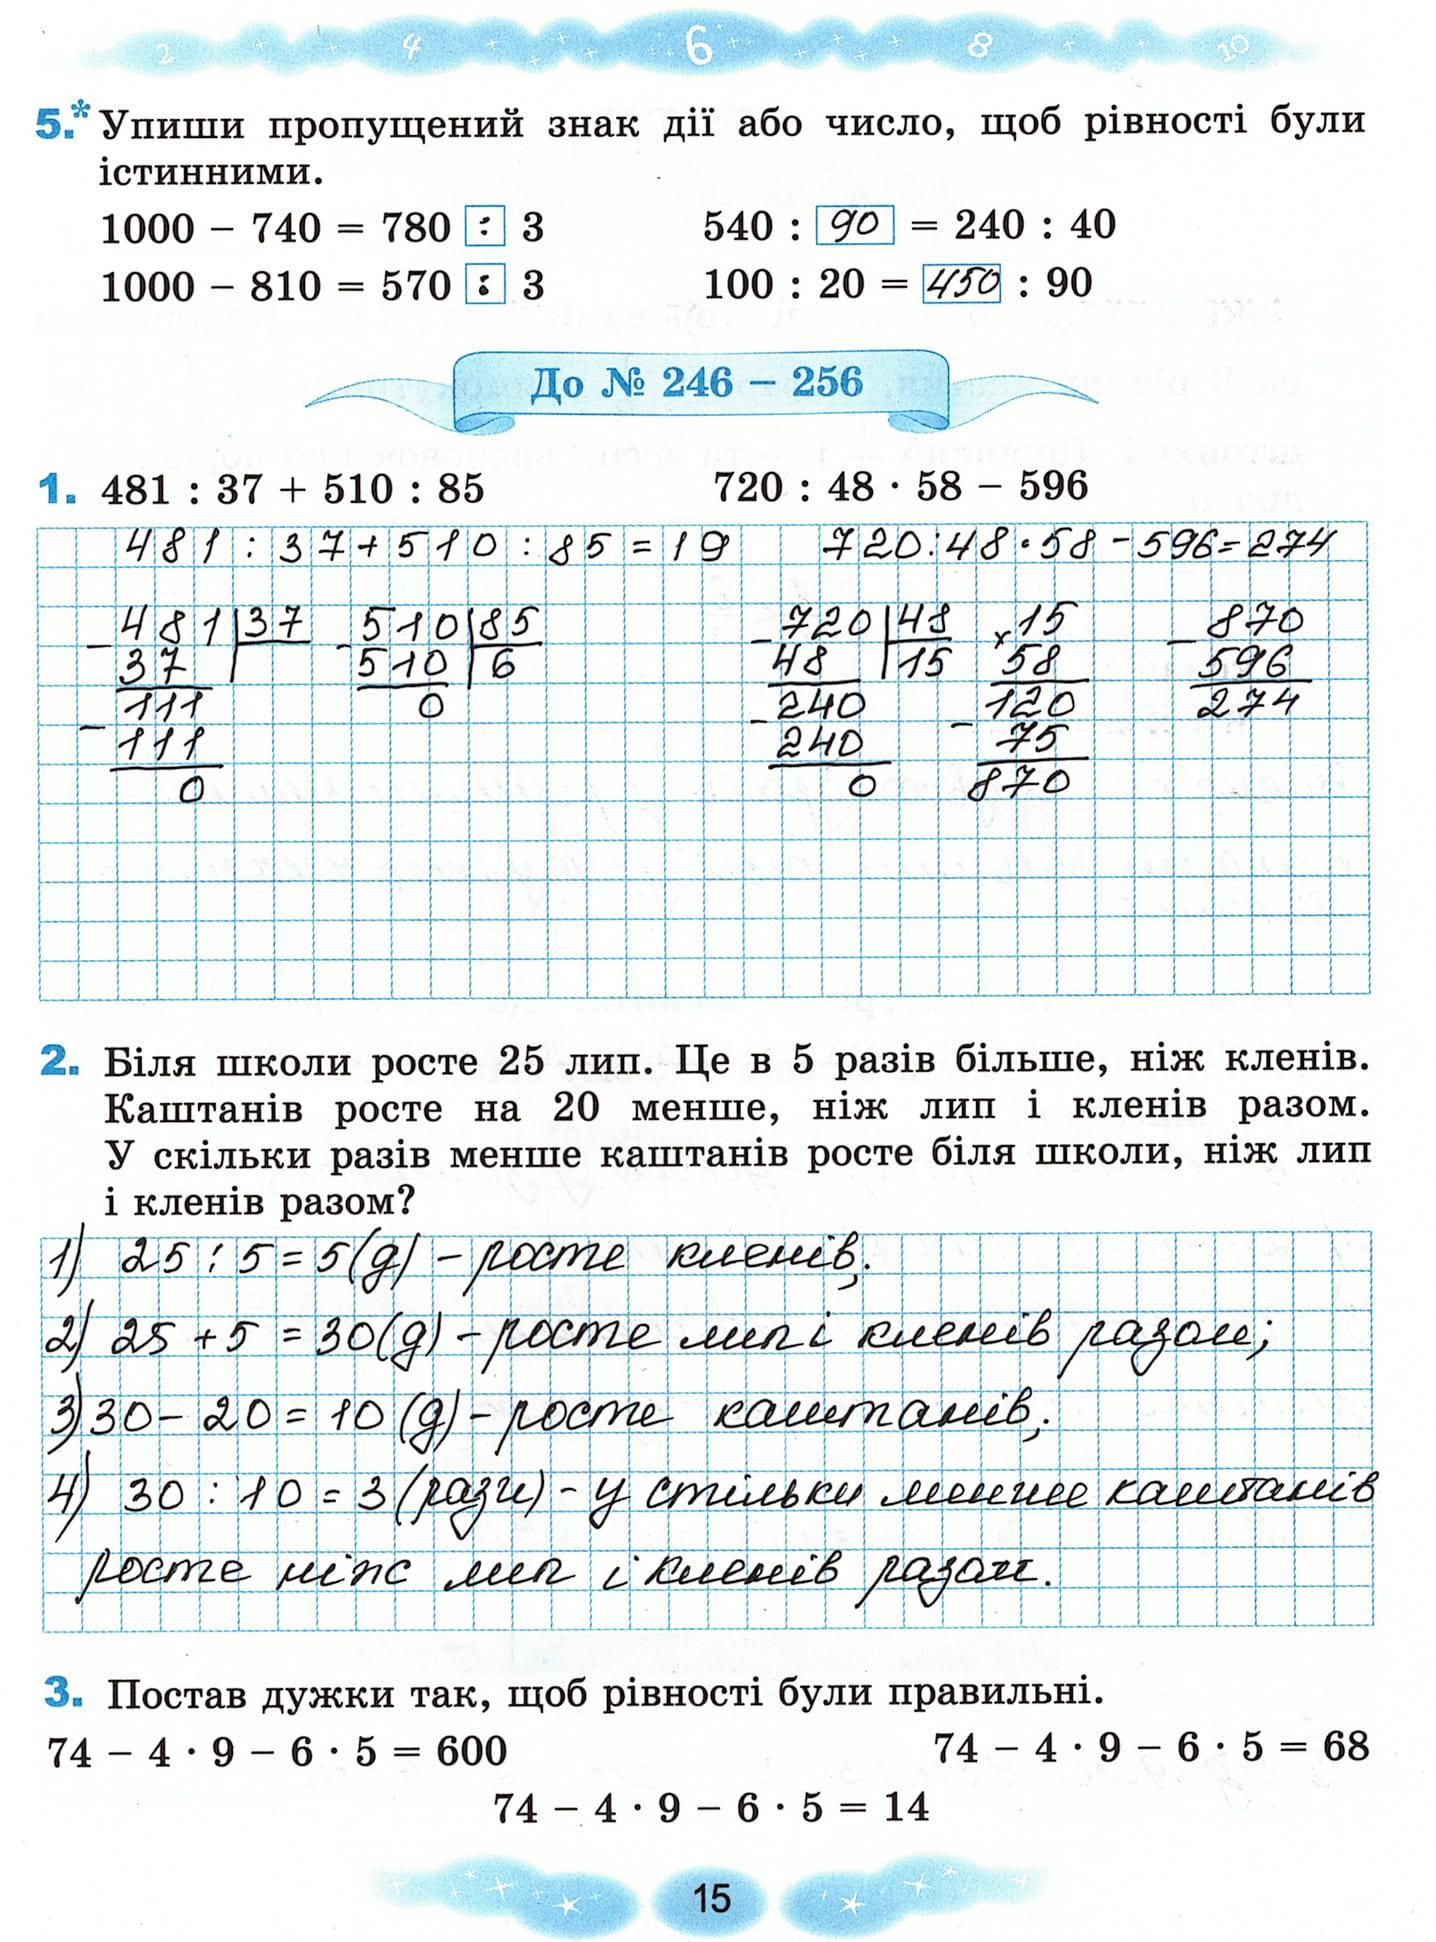 2 4 6 8 10
5.* Упиши пропущений знак дії або число, щоб рівності були
істинними.
1000 – 740 = 780 : 3 540 : 90 = 240 : 40
1000 – 810 = 570 : 3 100 : 20 = 450 : 90
До № 246 – 256
1. 481 : 37 + 510 : 85 720 : 48 · 58 – 596
481 : 37 + 510 : 85 = 19 720 : 48 · 58 – 596 = 274
– 481 37 – 510 85 – 720 48 × 15 – 870
37 510 6 48 15 58 596
111 0 240 120 274
– 111 – 240 – 75
0 0 870
2. Біля школи росте 25 лип. Це в 5 разів більше, ніж кленів.
Каштанів росте на 20 менше, ніж лип і кленів разом.
У скільки разів менше каштанів росте біля школи, ніж лип
і кленів разом?
1) 25 : 5 = 5 (д) – росте кленів;
2) 25 + 5 = 30 (д) – росте лип і кленів разом;
3) 30 – 20 = 10 (д) – росте каштанів;
4) 30 : 10 = 3 (рази) – у стільки менше каштанів
росте ніж лип і кленів разом.
3. Постав дужки так, щоб рівності були правильні.
74 – 4 · 9 – 6 · 5 = 600 74 – 4 · 9 – 6 · 5 = 68
74 – 4 · 9 – 6 · 5 = 14
15